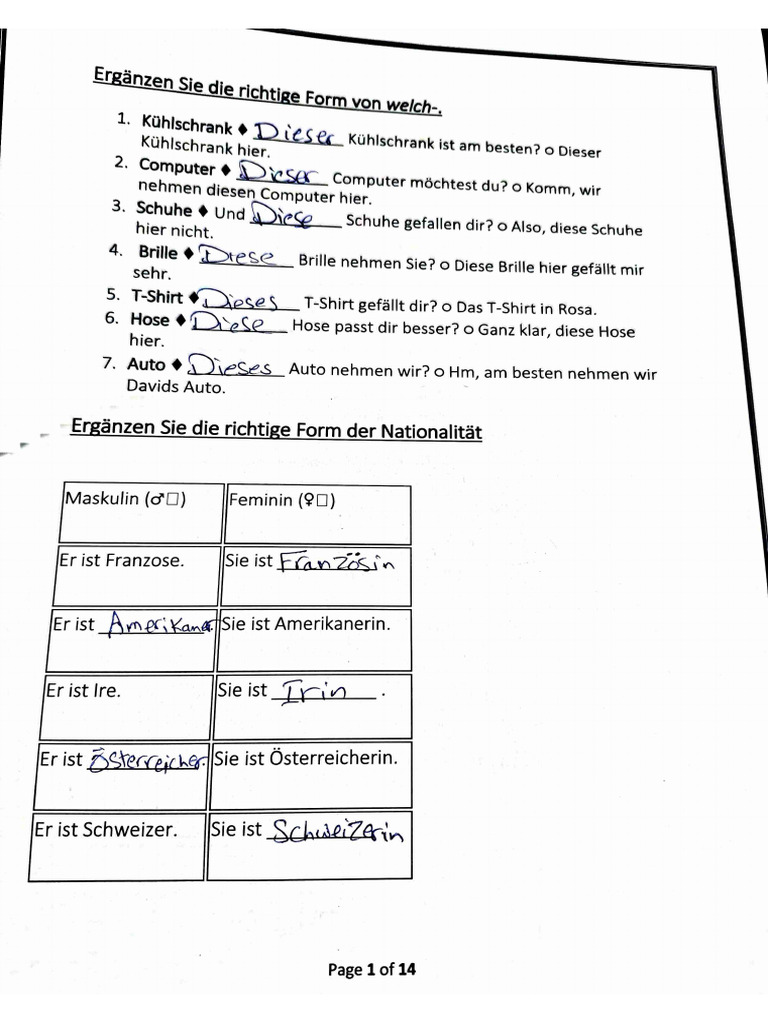 Ergänzen Sie die richtige Form von welch-.
1. Kühlschrank ♦ Dieser Kühlschrank ist am besten? o Dieser
Kühlschrank hier.
2. Computer ♦ Dieser Computer möchtest du? o Komm, wir
nehmen diesen Computer hier.
3. Schuhe ♦ Und Diese Schuhe gefallen dir? o Also, diese Schuhe
hier nicht.
4. Brille ♦ Diese Brille nehmen Sie? o Diese Brille hier gefällt mir
sehr.
5. T-Shirt ♦ Dieses T-Shirt gefällt dir? o Das T-Shirt in Rosa.
6. Hose ♦ Diese Hose passt dir besser? o Ganz klar, diese Hose
hier.
7. Auto ♦ Dieses Auto nehmen wir? o Hm, am besten nehmen wir
Davids Auto.
Ergänzen Sie die richtige Form der Nationalität
Maskulin (♂□) Feminin (♀□)
Er ist Franzose. Sie ist Französin
Er ist Amerikaner. Sie ist Amerikanerin.
Er ist Ire. Sie ist Irin .
Er ist Österreicher. Sie ist Österreicherin.
Er ist Schweizer. Sie ist Schweizerin
Page 1 of 14